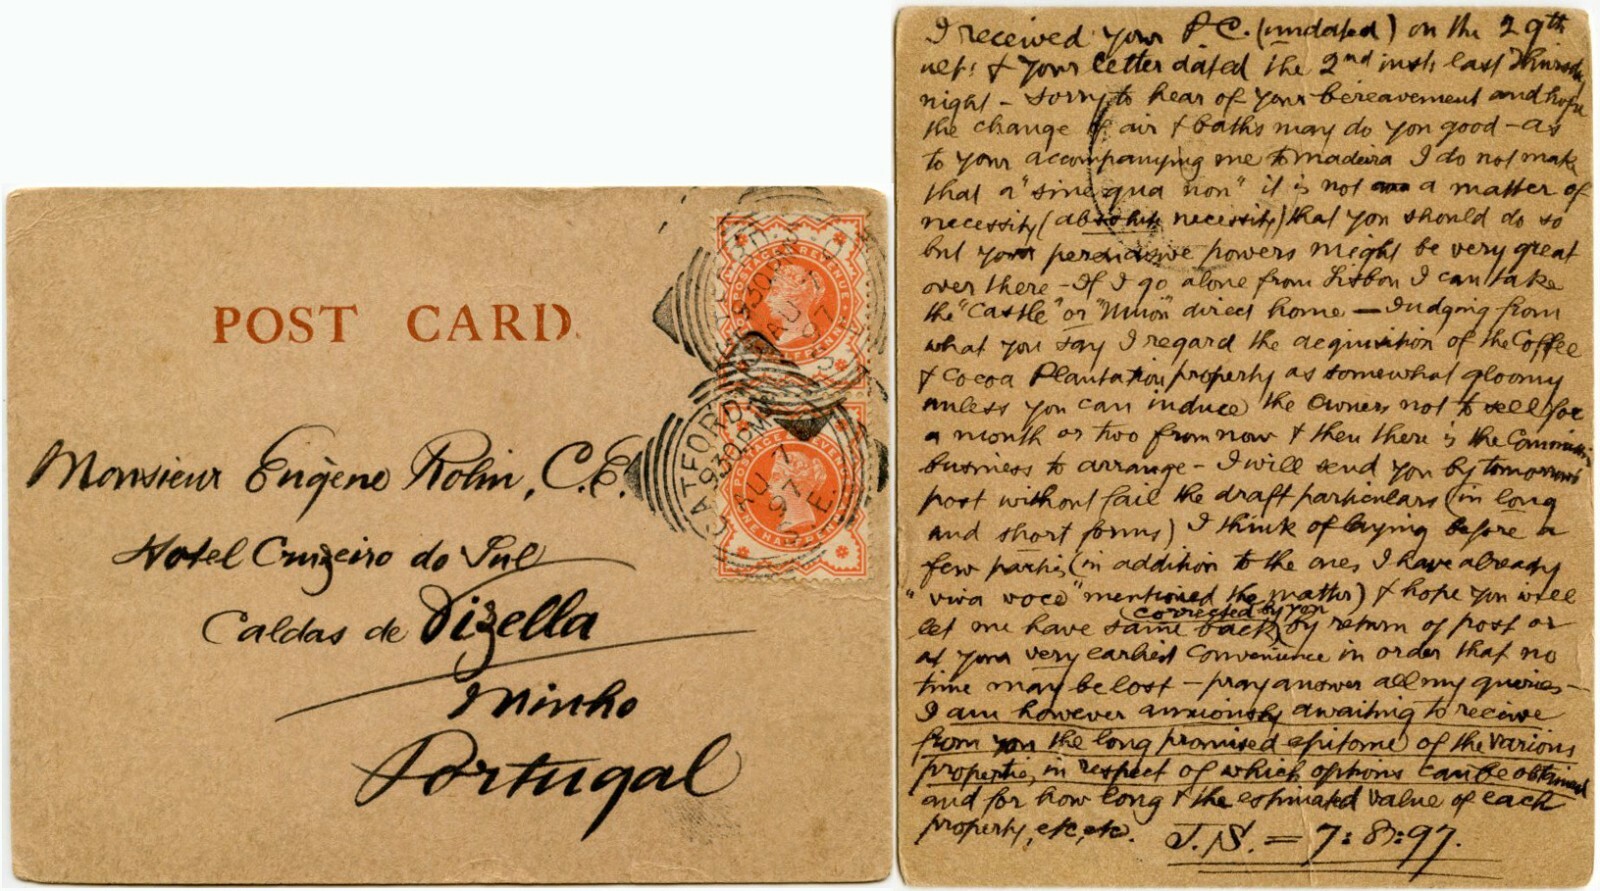 POST CARD
Monsieur Eugène Rolin, C.E.
Hotel Cruzeiro do Sul
Caldas de Vizella
Minho
Portugal
POSTAGE & REVENUE
HALFPENNY
9 30 PM
AU 7
97
POSTAGE & REVENUE
ONE HALFPENNY
CATFORD
9 30 PM
AU 7
97
S.E.
I received your P.C. (undated) on the 29th
ult: & your letter dated the 2nd inst: last Thursday
night – sorry to hear of your bereavement and hope
the change of air & baths may do you good – as
to your accompanying me to Madeira I do not make
that a "sine qua non" it is not a matter of
necessity (absolute necessity) that you should do so
but your persuasive powers might be very great
over there – If I go alone from Lisbon I can take
the "Castle" or "Union" direct home – Judging from
what you say I regard the acquisition of the Coffee
& Cocoa Plantation property as somewhat gloomy
unless you can induce the owners not to sell for
a month or two from now & then there is the Commission
business to arrange – I will send you by tomorrow's
post without fail the draft particulars (in long
and short forms) I think of laying before a
few parties (in addition to the ones I have already
"viva voce" mentioned the matter) & hope you will
(corrected by you
let me have same back) by return of post or
at your very earliest convenience in order that no
time may be lost – pray answer all my queries –
I am however anxiously awaiting to receive
from you the long promised epitome of the various
properties in respect of which options can be obtained
and for how long & the estimated value of each
property, etc, etc. J.S. = 7:8:97.